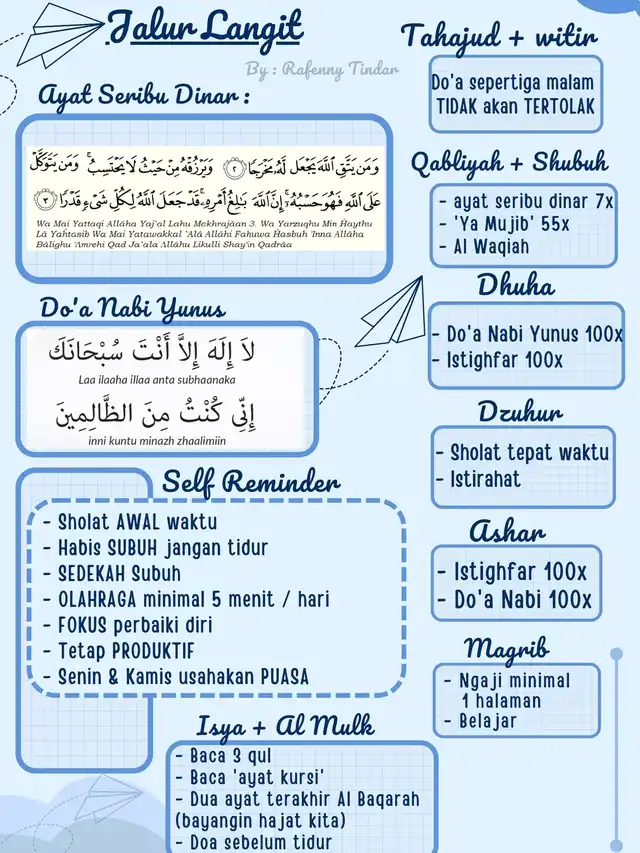 Jalur Langit
By : Rafenny Tindar
Ayat Seribu Dinar :
وَمَن يَتَّقِ اللَّهَ يَجْعَل لَّهُ مَخْرَجًا ﴿٢﴾ وَيَرْزُقْهُ مِنْ حَيْثُ لَا يَحْتَسِبُ ۚ وَمَن يَتَوَكَّلْ
عَلَى اللَّهِ فَهُوَ حَسْبُهُ ۚ إِنَّ اللَّهَ بَالِغُ أَمْرِهِ ۚ قَدْ جَعَلَ اللَّهُ لِكُلِّ شَيْءٍ قَدْرًا ﴿٣﴾
Wa Mai Yattaqi Allāha Yaj'al Lahu Mekhrajāan 3. Wa Yarzuqhu Min Ḣaythu
Lā Yahtasib Wa Mai Yatawakkal 'Alá Allāhi Fahuwa Ḣasbuh 'Inna Allāha
Bālighu 'Amrehi Qad Ja'ala Allāhu Likulli Shay'in Qadrāa
Do'a Nabi Yunus
لاَ إِلَهَ إِلاَّ أَنْتَ سُبْحَانَكَ
Laa ilaaha illaa anta subhaanaka
إِنِّي كُنْتُ مِنَ الظَّالِمِينَ
inni kuntu minazh zhaalimiin
Self Reminder
- Sholat AWAL waktu
- Habis SUBUH jangan tidur
- SEDEKAH Subuh
- OLAHRAGA minimal 5 menit / hari
- FOKUS perbaiki diri
- Tetap PRODUKTIF
- Senin & Kamis usahakan PUASA
Tahajud + witir
Do'a sepertiga malam
TIDAK akan TERTOLAK
Qabliyah + Shubuh
- ayat seribu dinar 7x
- 'Ya Mujib' 55x
- Al Waqiah
Dhuha
- Do'a Nabi Yunus 100x
- Istighfar 100x
Dzuhur
- Sholat tepat waktu
- Istirahat
Ashar
- Istighfar 100x
- Do'a Nabi 100x
Magrib
- Ngaji minimal
1 halaman
- Belajar
Isya + Al Mulk
- Baca 3 qul
- Baca 'ayat kursi'
- Dua ayat terakhir Al Baqarah
(bayangin hajat kita)
- Doa sebelum tidur